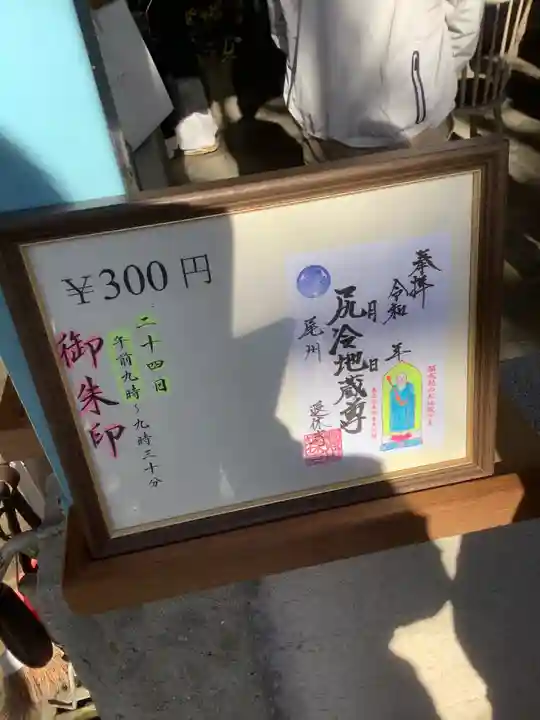 ¥300円
二十四日
午前九時～九時三十分
御朱印
奉拝
令和 年
月 日
尻冷地蔵尊
尾州